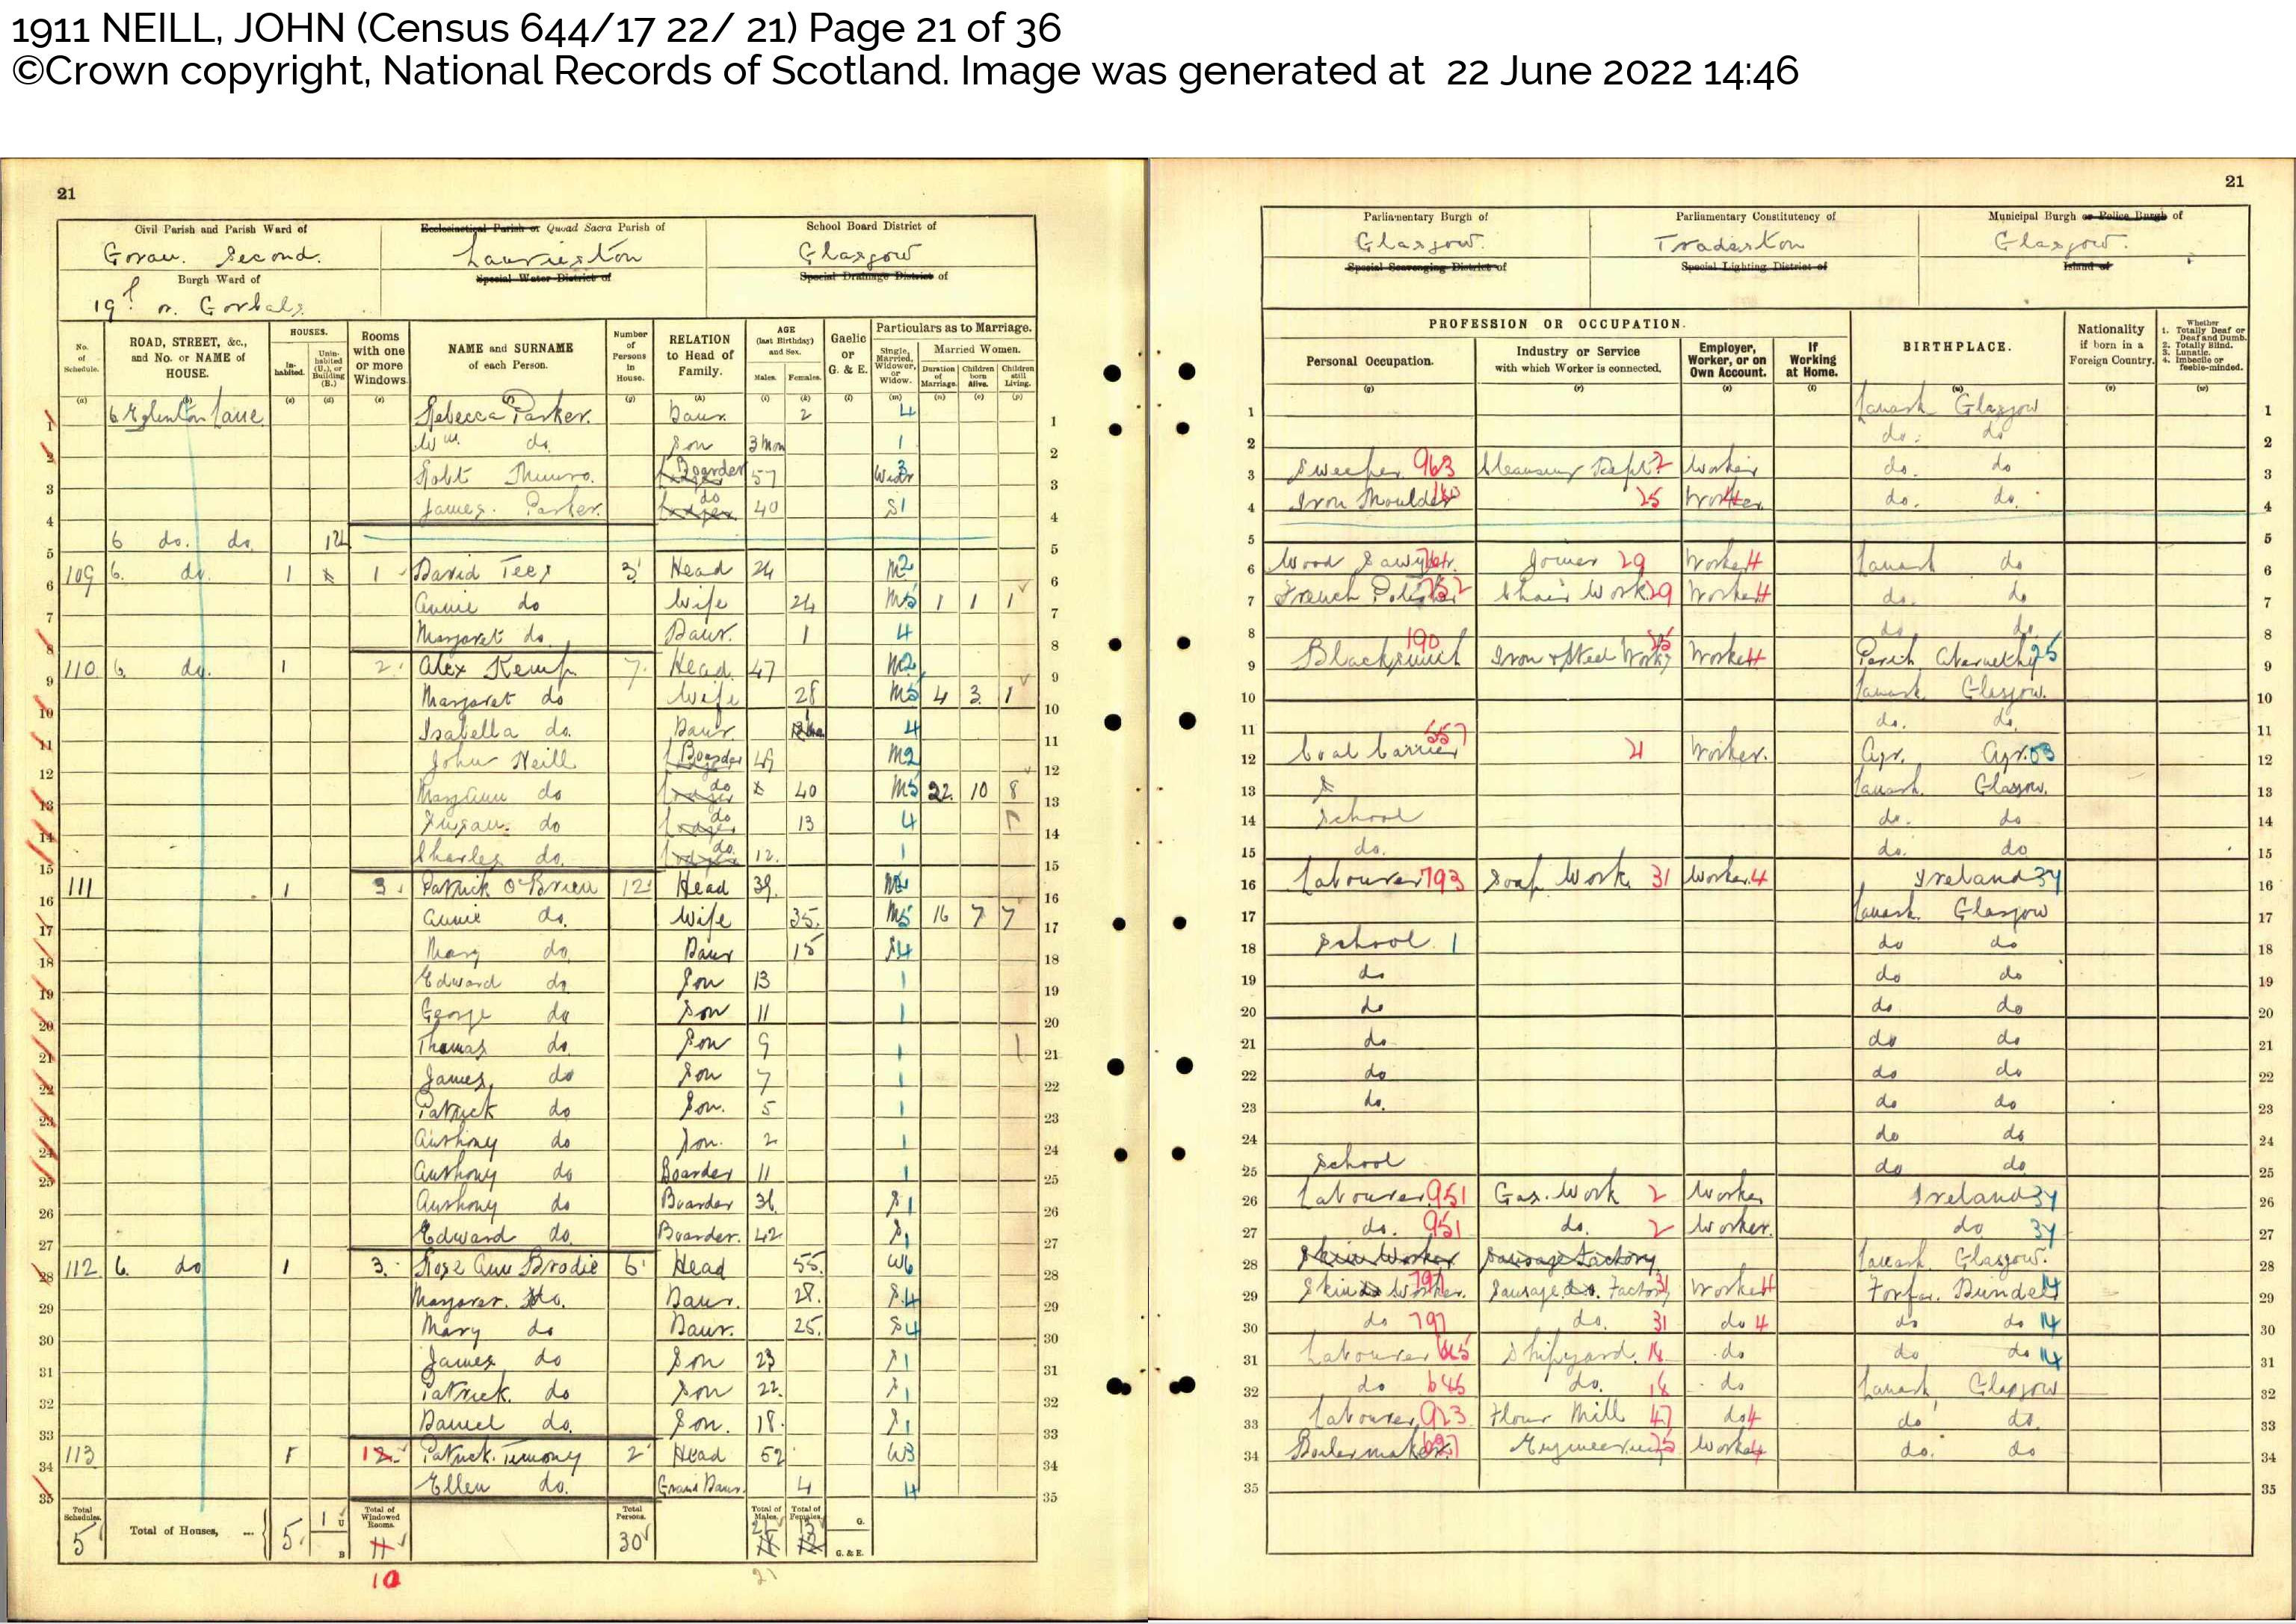 1911 NEILL, JOHN (Census 644/17 22/ 21) Page 21 of 36
©Crown copyright, National Records of Scotland. Image was generated at 22 June 2022 14:46
21
Civil Parish and Parish Ward of
Govan. Second.
Burgh Ward of
19 or Gorbals
Ecclesiastical Parish or Quoad Sacra Parish of
Laurieston
Special Water District of
School Board District of
Glasgow
Special Drainage District of
No. of Schedule.
ROAD, STREET, &c., and No. or NAME of HOUSE.
HOUSES.
Inhabited.
Uninhabited (U.), or Building (B.)
Rooms with one or more Windows.
NAME and SURNAME of each Person.
Number of Persons in House.
RELATION to Head of Family.
AGE (last Birthday) and Sex.
Males. Females.
Gaelic or G. & E.
Particulars as to Marriage.
Single, Married, Widower, or Widow.
Married Women.
Duration of Marriage. Children born Alive. Children still Living.
1 6 Eglinton Lane Rebecca Parker. Daur. 2 4
2 Wm do. Son 3 mon 1
3 Robt Munro. Boarder 57 Widr 3
4 James. Parker. do 40 S1
5 6 do. do. 1U
6 109 6. do. 1 1 David Tees 3 Head 24 M2
7 Annie do Wife 24 M5 1 1 1
8 Margaret do. Daur. 1 4
9 110 6. do. 1 2 Alex Kemp 7 Head 47 M2
10 Margaret do Wife 28 M5 4 3 1
11 Isabella do. Daur 4
12 John Neill Boarder 49 M2
13 MaryAnn do do 40 M5 22 10 8
14 Susan. do do 13 4
15 Charles do. do 12. 1
16 111 1 3 Patrick O'Brien 12 Head 39. M2
17 Annie do. Wife 35. M5 16 7 7
18 Mary do. Daur 15 S4
19 Edward do Son 13 1
20 George do Son 11 1
21 Thomas do. Son 9 1
22 James, do Son 7 1
23 Patrick do Son. 5 1
24 Anthony do Son. 2 1
25 Anthony do Boarder 11 1
26 Anthony do Boarder 36 S1
27 Edward do. Boarder. 42 S1
28 112 6. do 1 3. Rose Ann Brodie 6 Head 55. W6
29 Margaret. do. Daur. 28. S4
30 Mary do Daur. 25. S4
31 James do Son 23 S1
32 Patrick. do Son 22. S1
33 Daniel do. Son. 18. S1
34 113 1 1 Patrick. Timony 2 Head 52 W3
35 Ellen do. Grand Daur. 4 4
Total Schedules. 5
Total of Houses, ... 5 1 U B
Total of Windowed Rooms. 10
Total Persons. 30
Total of Males. 21
Total of Females. 13
G.
G. & E.
21
21
Parliamentary Burgh of
Glasgow.
Special Scavenging District of
Parliamentary Constitutency of
Tradeston
Special Lighting District of
Municipal Burgh or Police Burgh of
Glasgow.
Island of
PROFESSION OR OCCUPATION.
Personal Occupation.
Industry or Service with which Worker is connected.
Employer, Worker, or on Own Account.
If Working at Home.
BIRTHPLACE.
Nationality if born in a Foreign Country.
Whether
1. Totally Deaf or Deaf and Dumb.
2. Totally Blind.
3. Lunatic.
4. Imbecile or feeble-minded.
1 Lanark Glasgow
2 do. do
3 Sweeper 963 Cleansing Dept 2 Worker do. do
4 Iron Moulder 25 Worker do. do.
5
6 Wood Sawyer. Joiner 29 Worker 4 Lanark do
7 French Polisher Chair Work 29 Worker 4 do. do
8 do do.
9 Blacksmith 190 Iron & Steel Works Worker 4 Perth Abernethy 25
10 Lanark Glasgow.
11 do. do.
12 Coal Carrier 557 Worker. Ayr. Ayr. 03
13 Lanark Glasgow.
14 School do. do
15 do. do. do
16 Labourer 793 Soap Work. 31 Worker. 4 Ireland 34
17 Lanark. Glasgow
18 School. 1 do do
19 do do do
20 do do do
21 do do do
22 do do do
23 do. do do
24 do do
25 School do do
26 Labourer 951 Gas. Work 2 Worker Ireland 34
27 do. 951 do. 2 Worker. do 34
28 Skin Worker Sausage Factory Lanark. Glasgow.
29 Skin Worker. 797 Sausage do. Factory 31 Worker 4 Forfar. Dundee 14
30 do 797 do. 31 do 4 do do 14
31 Labourer 645 Shipyard. 18 do do do 14
32 do 645 do. 18 do Lanark Glasgow
33 Labourer 923 Flour Mill 47 do 4 do do.
34 Boilermaker. Engineering 25 Worker 4 do. do
35